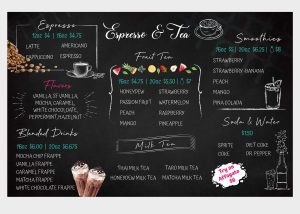 Espresso
12oz $4 | 16oz $4.75
LATTE
AMERICANO
CAPPUCCINO
ESPRESSO
Flavors
VANILLA, SF VANILLA,
MOCHA, CARAMEL,
WHITE CHOCOLATE,
PEPPERMINT, HAZELNUT
Blended Drinks
16oz $6.00 | 20oz $6.75
MOCHA CHIP FRAPPE
VANILLA FRAPPE
CARAMEL FRAPPE
MATCHA FRAPPE
WHITE CHOCOLATE FRAPPE
Espresso & Tea
Fruit Tea
HONEYDEW
STRAWBERRY
PASSION FRUIT
WATERMELON
PEACH
RASPBERRY
MANGO
PINEAPPLE
Milk Tea
THAI MILK TEA
TARO MILK TEA
HONEYDEW MILK TEA
MATCHA MILK TEA
Smoothies
STRAWBERRY
STRAWBERRY-BANANA
PEACH
MANGO
PINA COLADA
Soda & Water
$1.50
SPRITE
DIET COKE
COKE
DR PEPPER
Try an
Affogato
$6